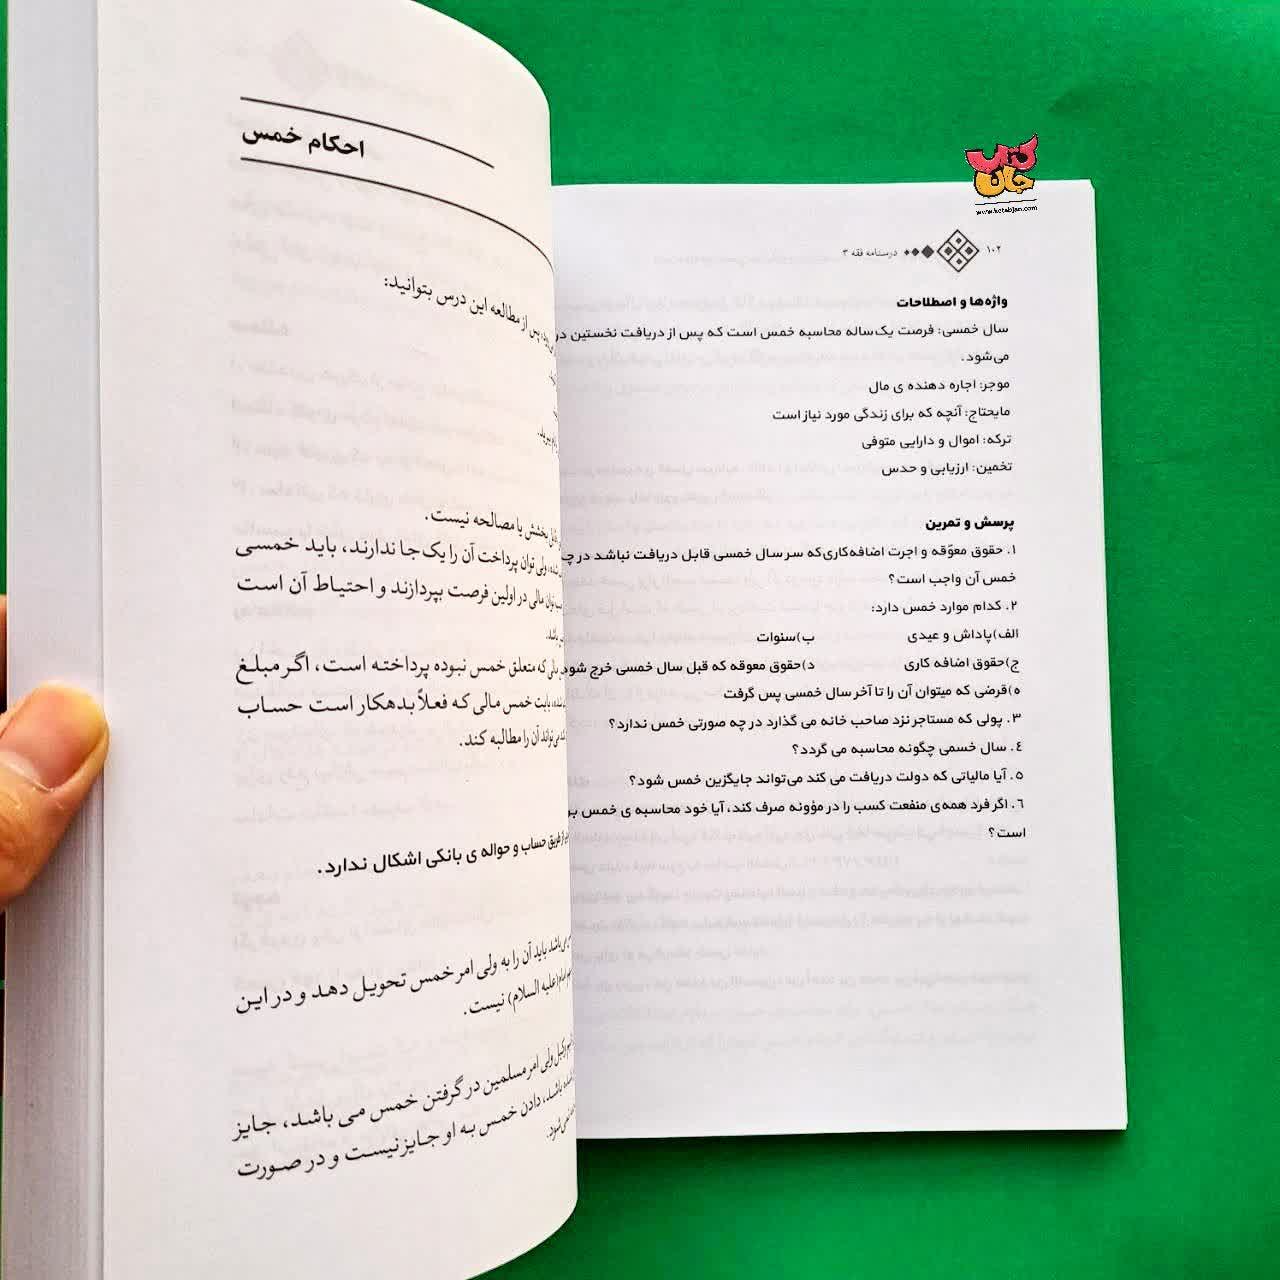 کتاب جان
www.ketabjan.com
۱۰۲ درسنامه فقه ۳
واژه‌ها و اصطلاحات
سال خمسی: فرصت یک‌ساله محاسبه خمس است که پس از دریافت نخستین در
می‌شود.
موجر: اجاره دهنده ی مال
مایحتاج: آنچه که برای زندگی مورد نیاز است
ترکه: اموال و دارایی متوفی
تخمین: ارزیابی و حدس
پرسش و تمرین
۱. حقوق معوّقه و اجرت اضافه‌کاری‌که سر سال خمسی قابل دریافت نباشد در چه
خمس آن واجب است؟
۲. کدام موارد خمس دارد:
الف)پاداش و عیدی ب)سنوات
ج)حقوق اضافه کاری د)حقوق معوقه که قبل سال خمسی خرج شود
ه)قرضی که میتوان آن را تا آخر سال خمسی پس گرفت
۳. پولی که مستاجر نزد صاحب خانه می گذارد در چه صورتی خمس ندارد؟
٤. سال خسمی چگونه محاسبه می گردد؟
٥. آیا مالیاتی که دولت دریافت می کند می‌تواند جایگزین خمس شود؟
٦. اگر فرد همه‌ی منفعت کسب را در مؤونه صرف کند، آیا خود محاسبه ی خمس بر
است؟
احکام خمس
پس از مطالعه این درس بتوانید:
قابل بخشش یا مصالحه نیست.
شده، ولی توان پرداخت آن را یک‌جا ندارند، باید خمسی
توان مالی در اولین فرصت بپردازند و احتیاط آن است
باشد.
مالی که متعلق خمس نبوده پرداخته است، اگر مبلغ
شده، بابت خمس مالی که فعلاً بدهکار است حساب
می‌تواند آن را مطالبه کند.
از طریق حساب و حواله ی بانکی اشکال ندارد.
می‌باشد باید آن را به ولی امر خمس تحویل دهد و در این
امام(علیه السلام) نیست.
وکیل ولی امر مسلمین در گرفتن خمس می باشد، جایز
باشد، دادن خمس به او جایز نیست و در صورت
نمی‌شود.